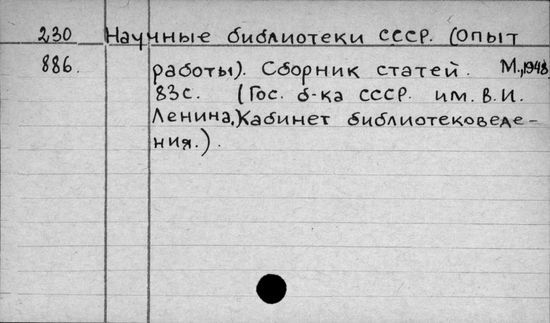 230 Научные библиотеки СССР. (Опыт
886. работы). Сборник статей. М., 1948,
83с. (Гос. б-ка СССР им. В. И.
Ленина. Кабинет библиотековеде-
ния.).